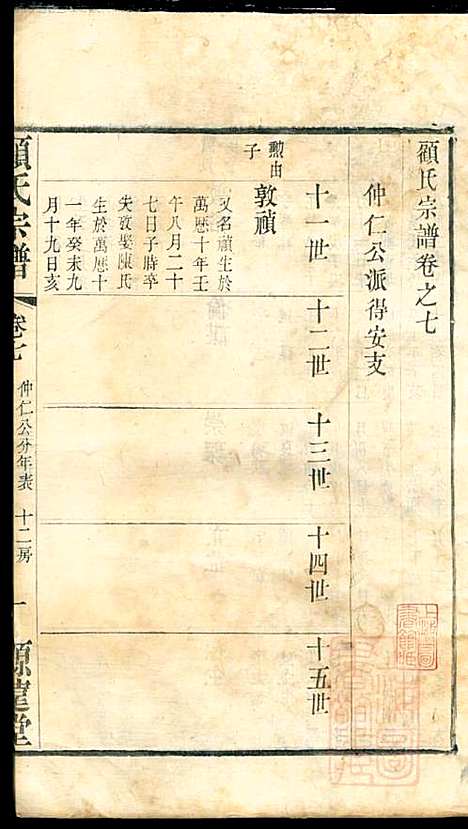 顧氏宗譜卷之七
仲仁公派得安支
十一世
十二世
十三世
十四世
十五世
勲由子
敦禎
又名順生於
萬歷十年壬
午八月二十
七日子時卒
失攷娶陳氏
生於萬歷十
一年癸未九
月十九日亥
顧氏宗譜
卷七
仲仁公分年表
十二房
一